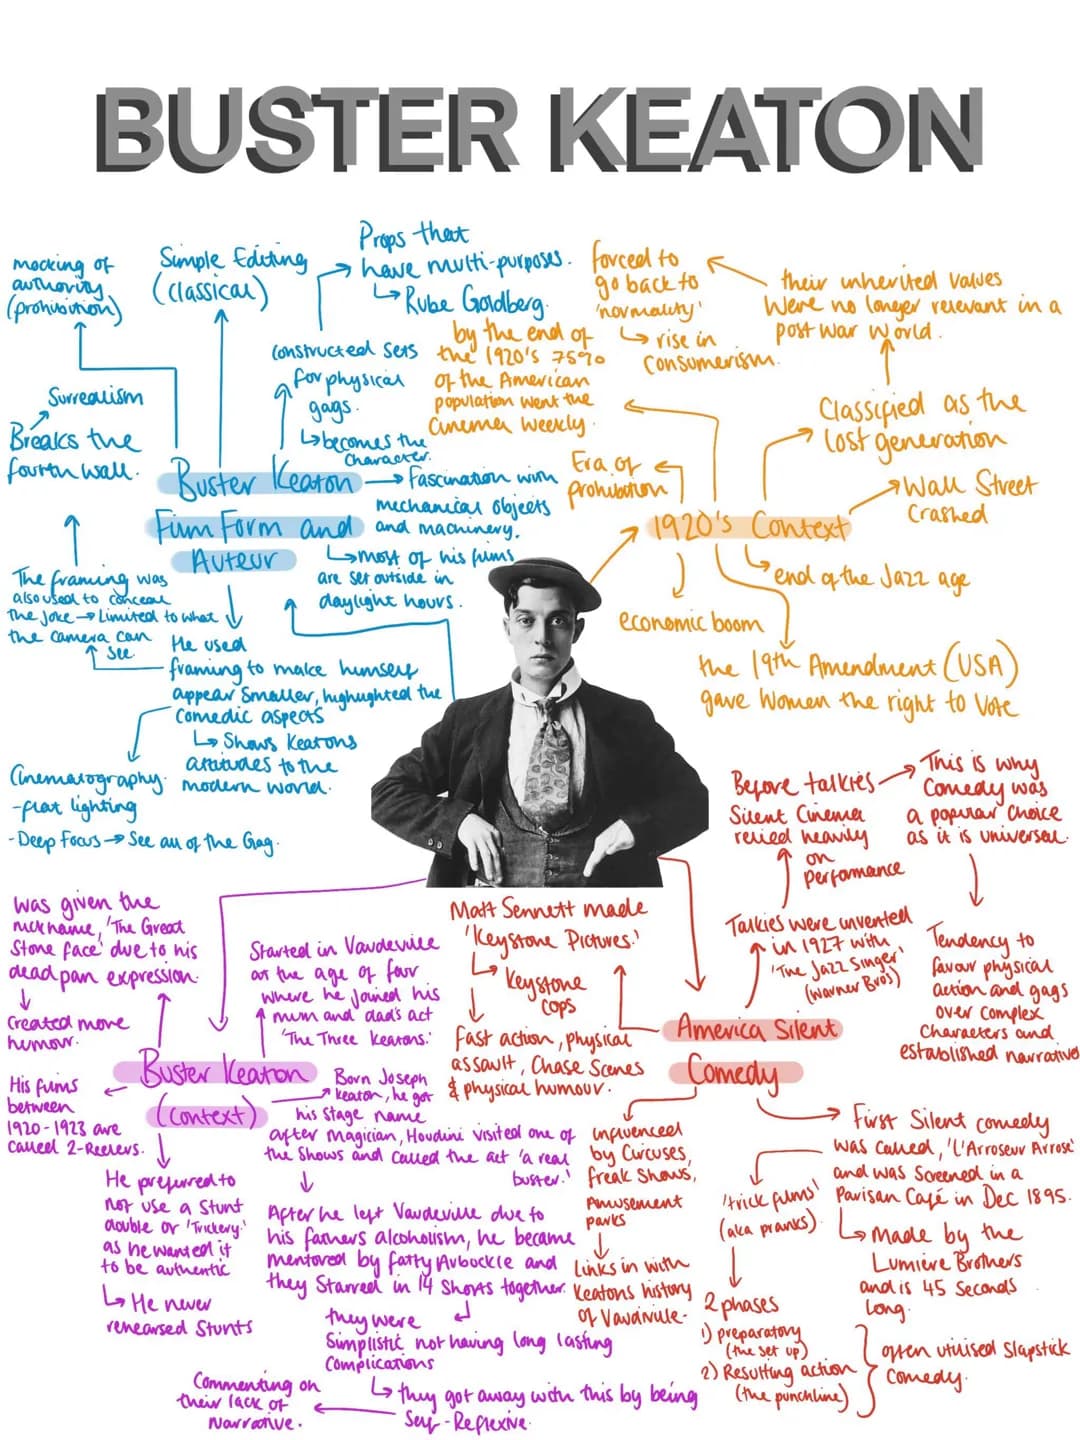 BUSTER KEATON
mocking of
authority
(prohibition)
Simple Editing
(classical)
Props that
have multi-purposes.
Rube Goldberg.
constructed sets
for physical
gags.
becomes the
character.
Surrealism
Breaks the
fourth wall.
Buster Keaton
Film Form and
Auteur
Fascination with
mechanical objects
and machinery.
most of his films
are set outside in
daylight hours.
The framing was
also used to conceal
the joke → Limited to what
the camera can
see.
He used
framing to make himself
appear smaller, highlighted the
comedic aspects
Shows Keatons
attitudes to the
modern world.
Cinematography.
-flat lighting
-Deep Focus → See all of the Gag.
forced to
go back to
'normality'
rise in
consumerism.
their inherited values
were no longer relevant in a
post war world.
by the end of
the 1920's 75%
of the American
population went the
Cinema weekly.
Classified as the
lost generation
Era of
prohibition
Wall Street
Crashed
1920's Context
end of the Jazz age
economic boom
the 19th Amendment (USA)
gave women the right to vote
Before talkies
Silent Cinema
relied heavily
on
performance
This is why
Comedy was
a popular choice
as it is universal.
Talkies were invented
in 1927 with
'The Jazz Singer'
(Warner Bros)
Tendency to
favour physical
action and gags
over complex
characters and
established narrative
Matt Sennett made
'Keystone Pictures.'
Keystone
cops
Fast action, physical
assault, Chase Scenes
& physical humour.
America Silent
Comedy
influenced
by Circuses,
freak shows,
Amusement
parks
Links in with
Keatons history
of Vaudiville.
First Silent comedy
was called, 'L'Arroseur Arrosé'
and was screened in a
Parisan Café in Dec 1895.
Made by the
Lumiere Brothers
and is 45 seconds
long.
'trick films'
(aka pranks).
2 phases
1) preparatory
(the set up)
2) Resulting action
(the punchline)
often utilised slapstick
comedy.
was given the
nickname, 'The Great
Stone face' due to his
deadpan expression.
created more
humour.
Started in Vaudeville
at the age of four
where he joined his
mum and dad's act
'The Three Keatons.'
Buster Keaton
(context)
His films
between
1920-1923 are
called 2-Reelers.
Born Joseph
Keaton, he got
his stage name
after magician, Houdini visited one of
the shows and called the act 'a real
buster.'
He preferred to
not use a stunt
double or 'Trickery.'
as he wanted it
to be authentic
He never
rehearsed stunts
After he left Vaudeville due to
his fathers alcoholism, he became
mentored by fatty Arbockle and
they starred in 14 shorts together.
they were
simplistic not having long lasting
complications
they got away with this by being
Self-Reflexive.
Commenting on
their lack of
Narrative.